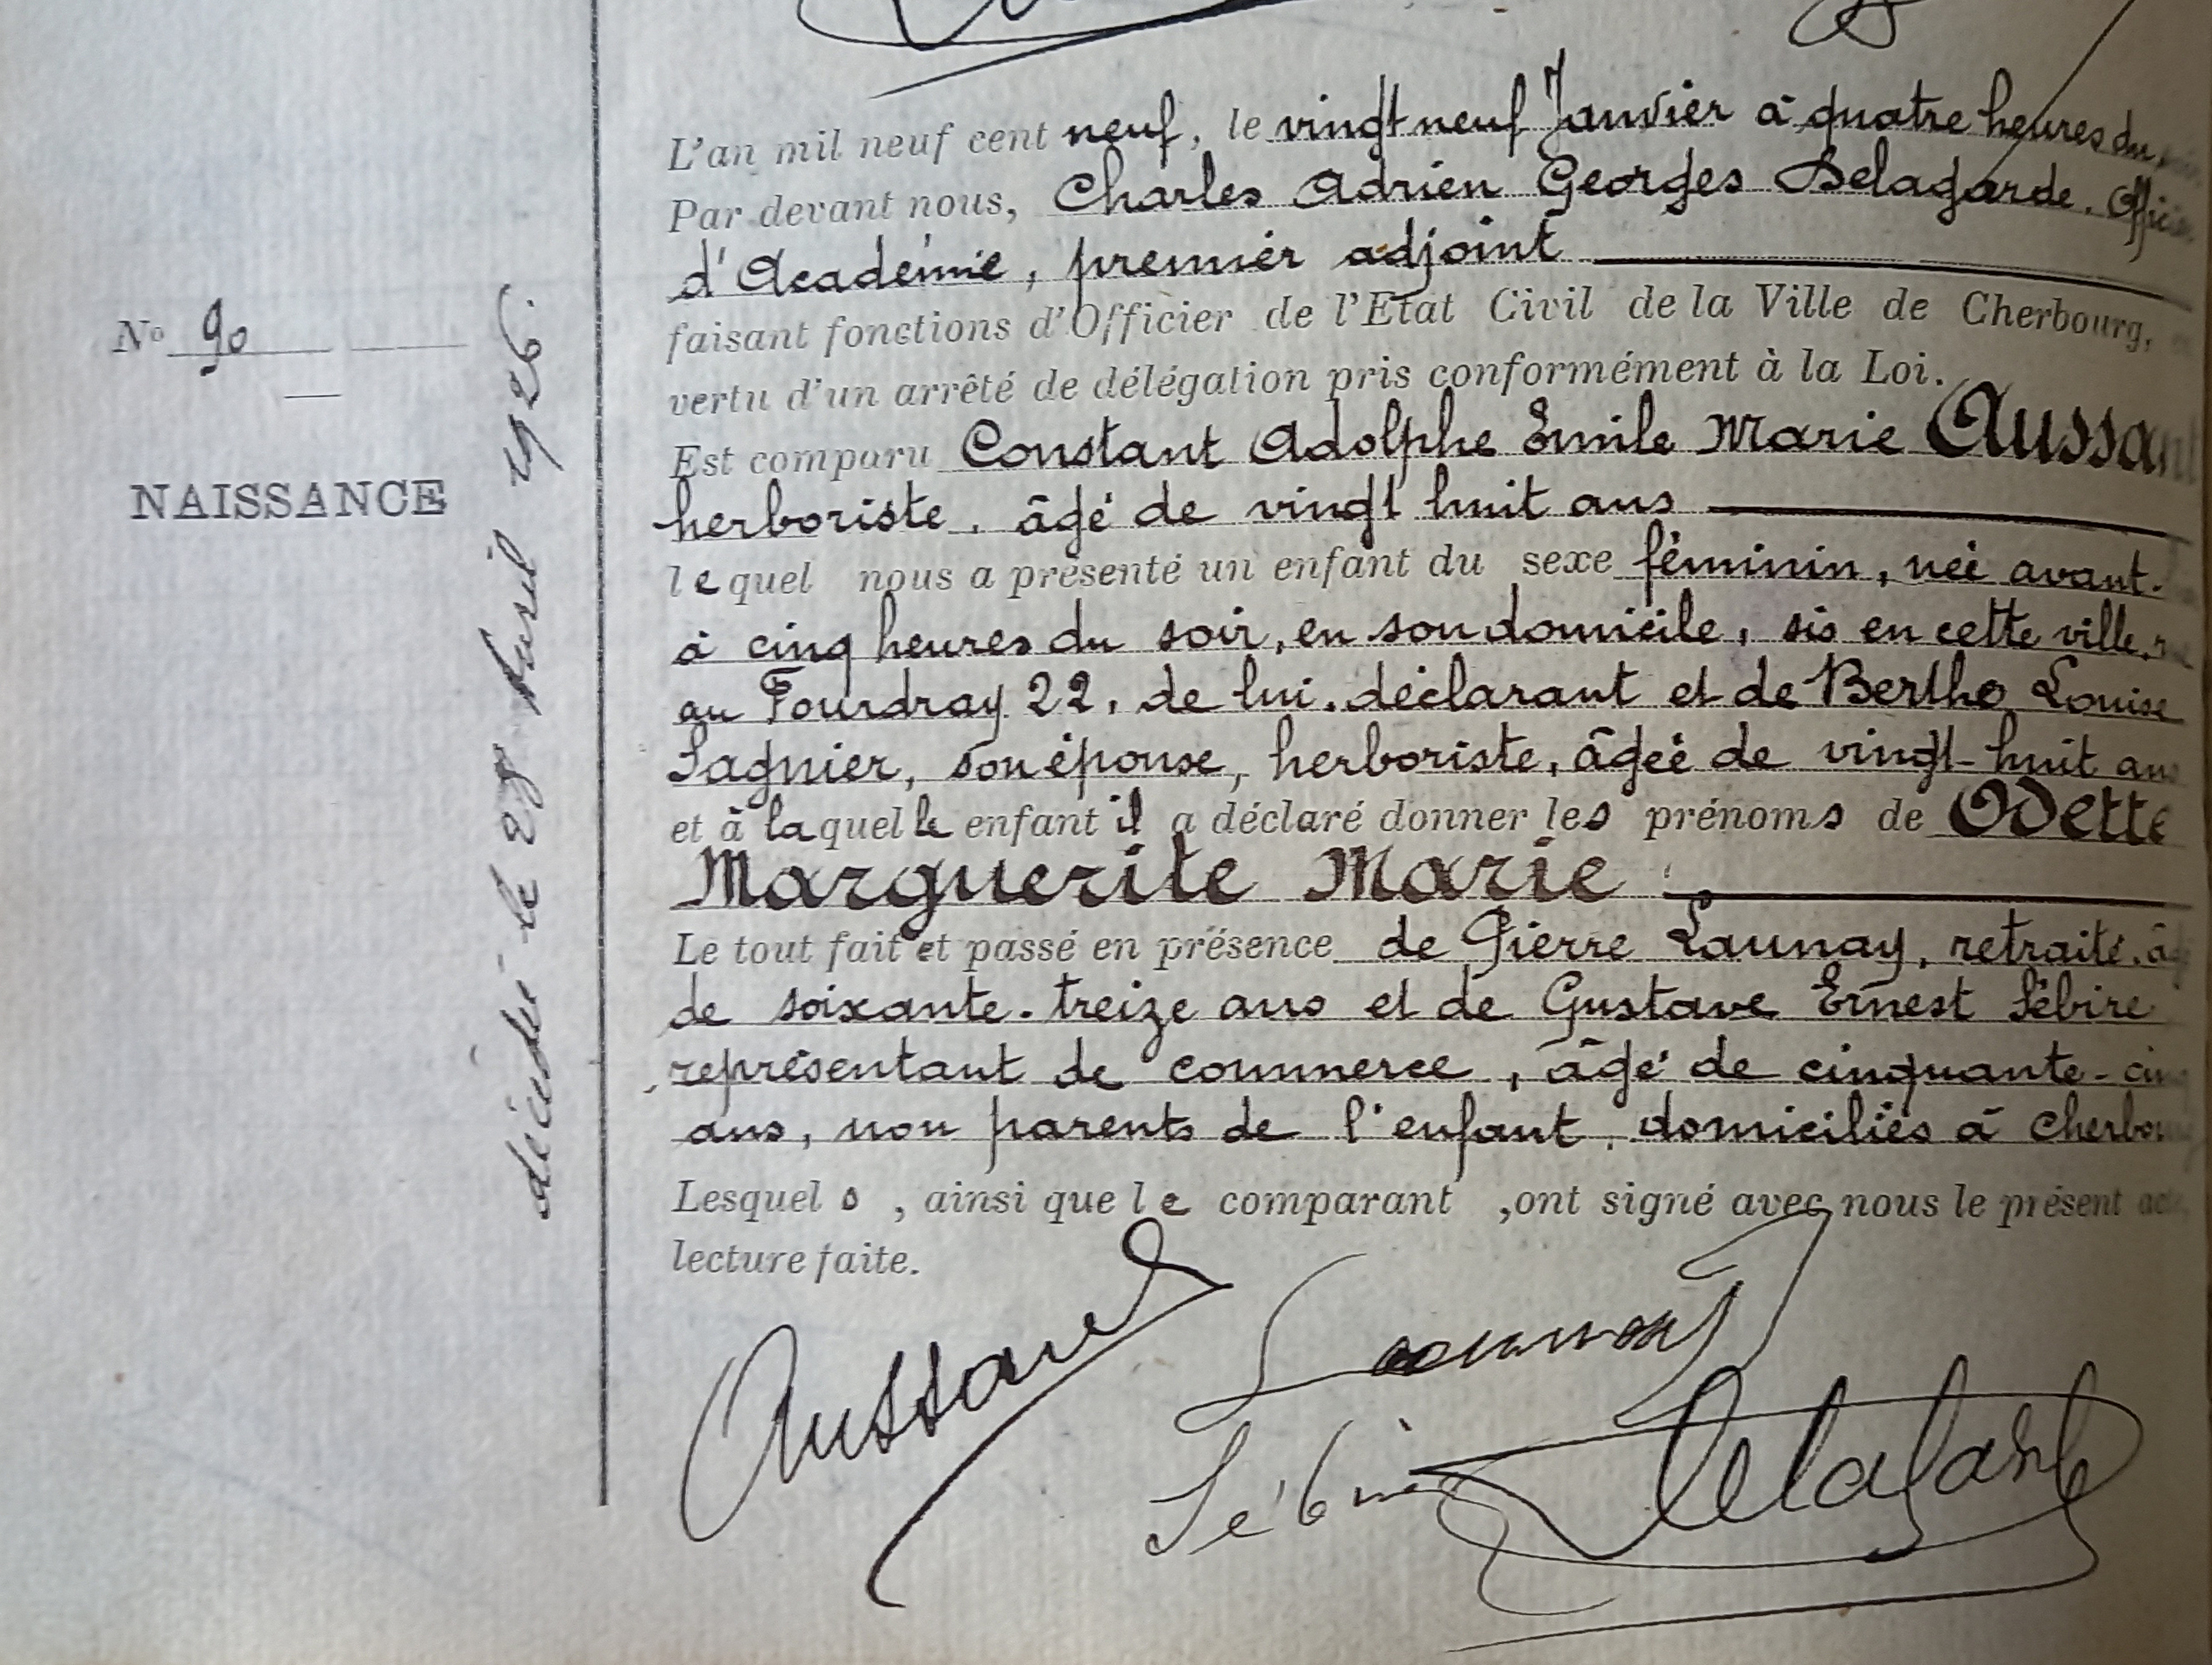 L'an mil neuf cent neuf, le vingt neuf Janvier à quatre heures du
Par devant nous, Charles Adrien Georges Delagarde. Officier
d'Académie, premier adjoint
faisant fonctions d'Officier de l'Etat Civil de la Ville de Cherbourg,
vertu d'un arrêté de délégation pris conformément à la Loi.
Est comparu Constant Adolphe Emile Marie Aussant
herboriste, âgé de vingt huit ans
lequel nous a présenté un enfant du sexe féminin, née avant-
à cinq heures du soir, en son domicile, sis en cette ville,
au Fourdray 22, de lui, déclarant et de Berthe Louise
Sagnier, son épouse, herboriste, âgée de vingt-huit ans
et à laquelle enfant il a déclaré donner les prénoms de Odette
Marguerite Marie
Le tout fait et passé en présence de Pierre Launay, retraité,
de soixante-treize ans et de Gustave Ernest Sébire
représentant de commerce, âgé de cinquante-cinq
ans, non parents de l'enfant, domiciliés à Cherbourg
Lesquels, ainsi que le comparant, ont signé avec nous le présent acte
lecture faite.
Nº 90
NAISSANCE
décédée le 28 Avril 1926.
Aussant
Launay
Sébire
Delagarde